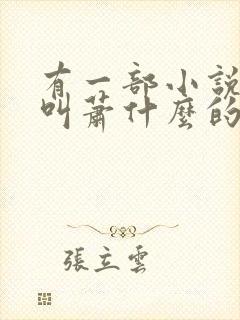 有一部小說
叫蕭什麼的
張立雲